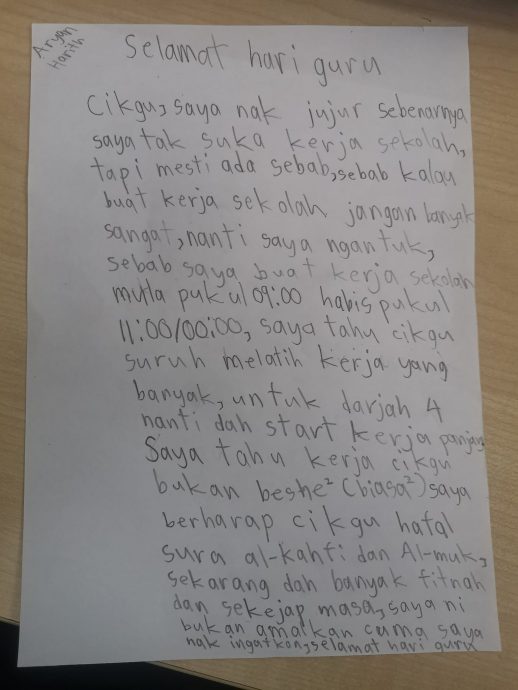 Aryan
Harith
Selamat hari guru
Cikgu, saya nak jujur sebenarnya
saya tak suka kerja sekolah,
tapi mesti ada sebab, sebab kalau
buat kerja sekolah jangan banyak
sangat, nanti saya ngantuk,
sebab saya buat kerja sekolah
mula pukul 09:00 habis pukul
11:00/00:00, saya tahu cikgu
suruh melatih kerja yang
banyak, untuk darjah 4
nanti dah start kerja panjang
Saya tahu kerja cikgu
bukan beshe² (biasa²) saya
berharap cikgu hafal
sura al-kahfi dan Al-mulk,
sekarang dah banyak fitnah
dan sekejap masa, saya ni
bukan amalkan cuma saya
nak ingatkan, selamat hari guru